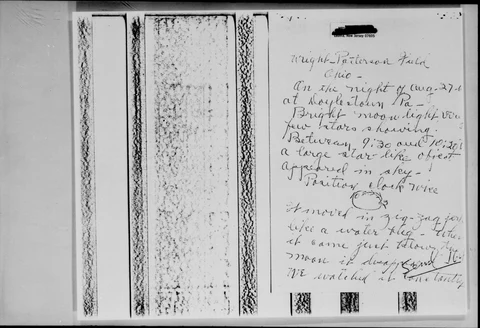 New Jersey 07605
Wright-Patterson Field
Ohio-
On the night of Aug. 27
at Doylestown Pa-
Bright moon light
few stars showing.
Between 9:30 and 10:30
a large star like object
appeared in sky-
Position clock wise
It moved in zig-zag
like a water bug-
it came just below the
moon it disappeared
We watched it constantly